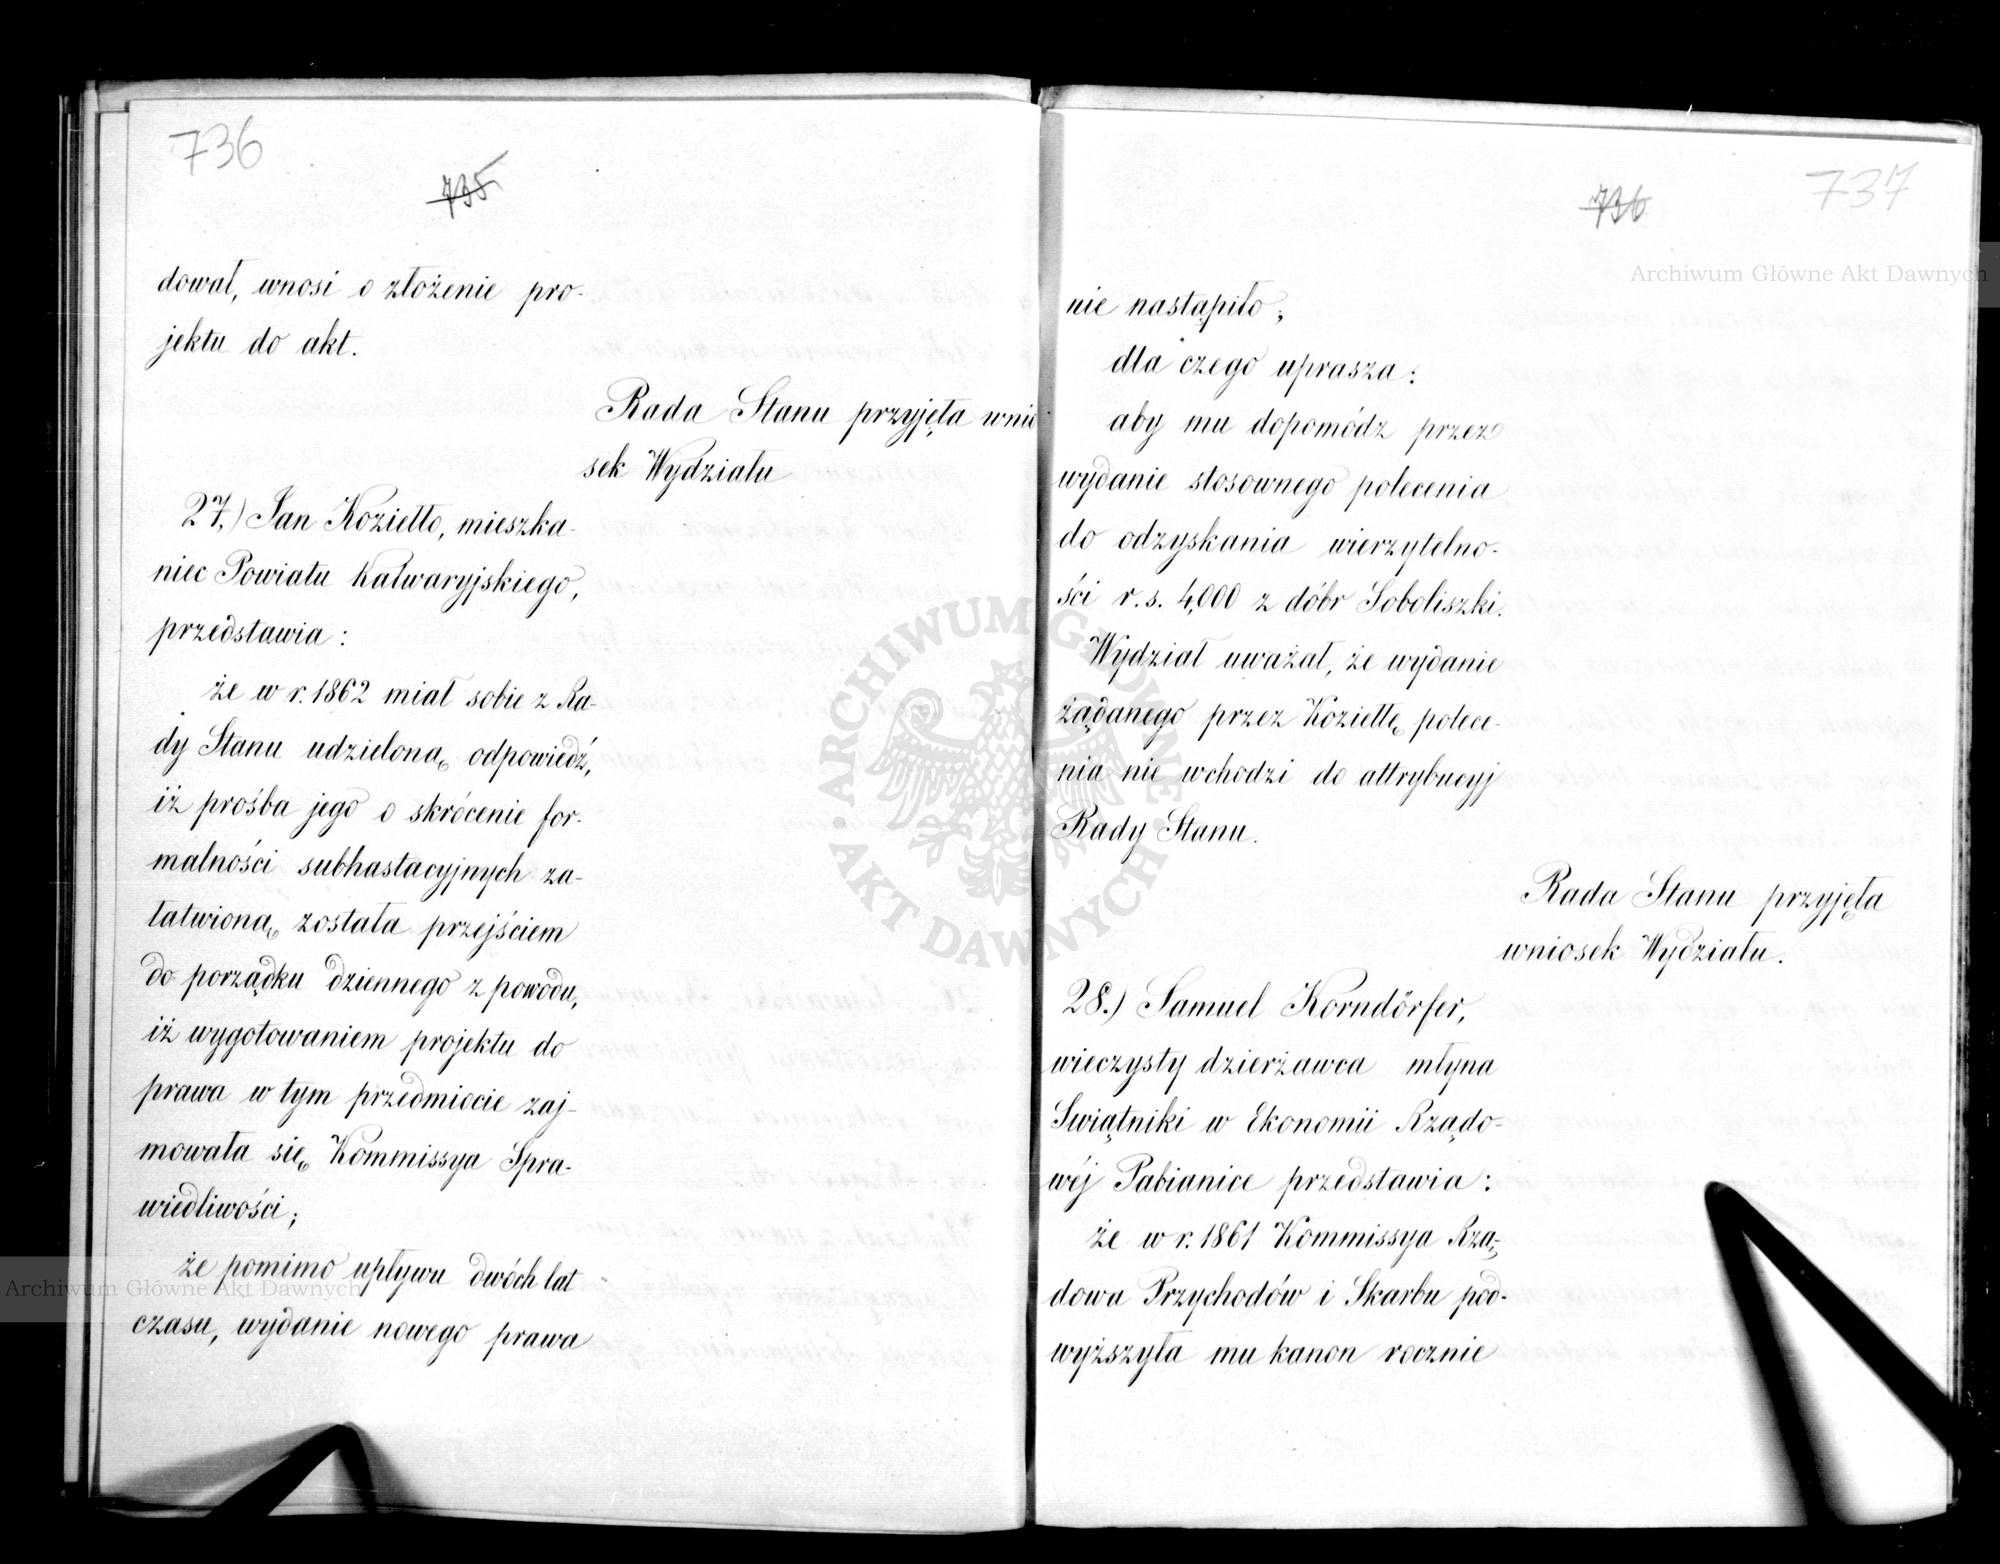 736
735
dował, wnosi o złożenie pro-
jektu do akt.
Rada Stanu przyjęła wnio-
sek Wydziału
27.) Jan Koziełło, mieszka-
niec Powiatu Kalwaryjskiego,
przedstawia:
że w r. 1862 miał sobie z Ra-
dy Stanu udzieloną odpowiedź,
iż prośba jego o skrócenie for-
malności subhastacyjnych za-
łatwioną została przejściem
do porządku dziennego z powodu,
iż wygotowaniem projektu do
prawa w tym przedmiocie zaj-
mowała się Kommissya Spra-
wiedliwości;
że pomimo upływu dwóch lat
czasu, wydanie nowego prawa
737
736
nie nastąpiło;
dla czego uprasza:
aby mu dopomódz przez
wydanie stosownego polecenia
do odzyskania wierzytelno-
ści r. s. 4,000 z dóbr Soboliszki.
Wydział uważał, że wydanie
żądanego przez Koziełłę polece-
nia nie wchodzi do attrybucyj
Rady Stanu.
Rada Stanu przyjęła
wniosek Wydziału.
28.) Samuel Korndörfer,
wieczysty dzierżawca młyna
Swiątniki w Ekonomii Rządo-
wéj Pabianice przedstawia:
że w r. 1861 Kommissya Rzą-
dowa Przychodów i Skarbu pod-
wyższyła mu kanon rocznie
Archiwum Główne Akt Dawnych
Archiwum Główne Akt Dawnych
ARCHIWUM GŁÓWNE
AKT DAWNYCH